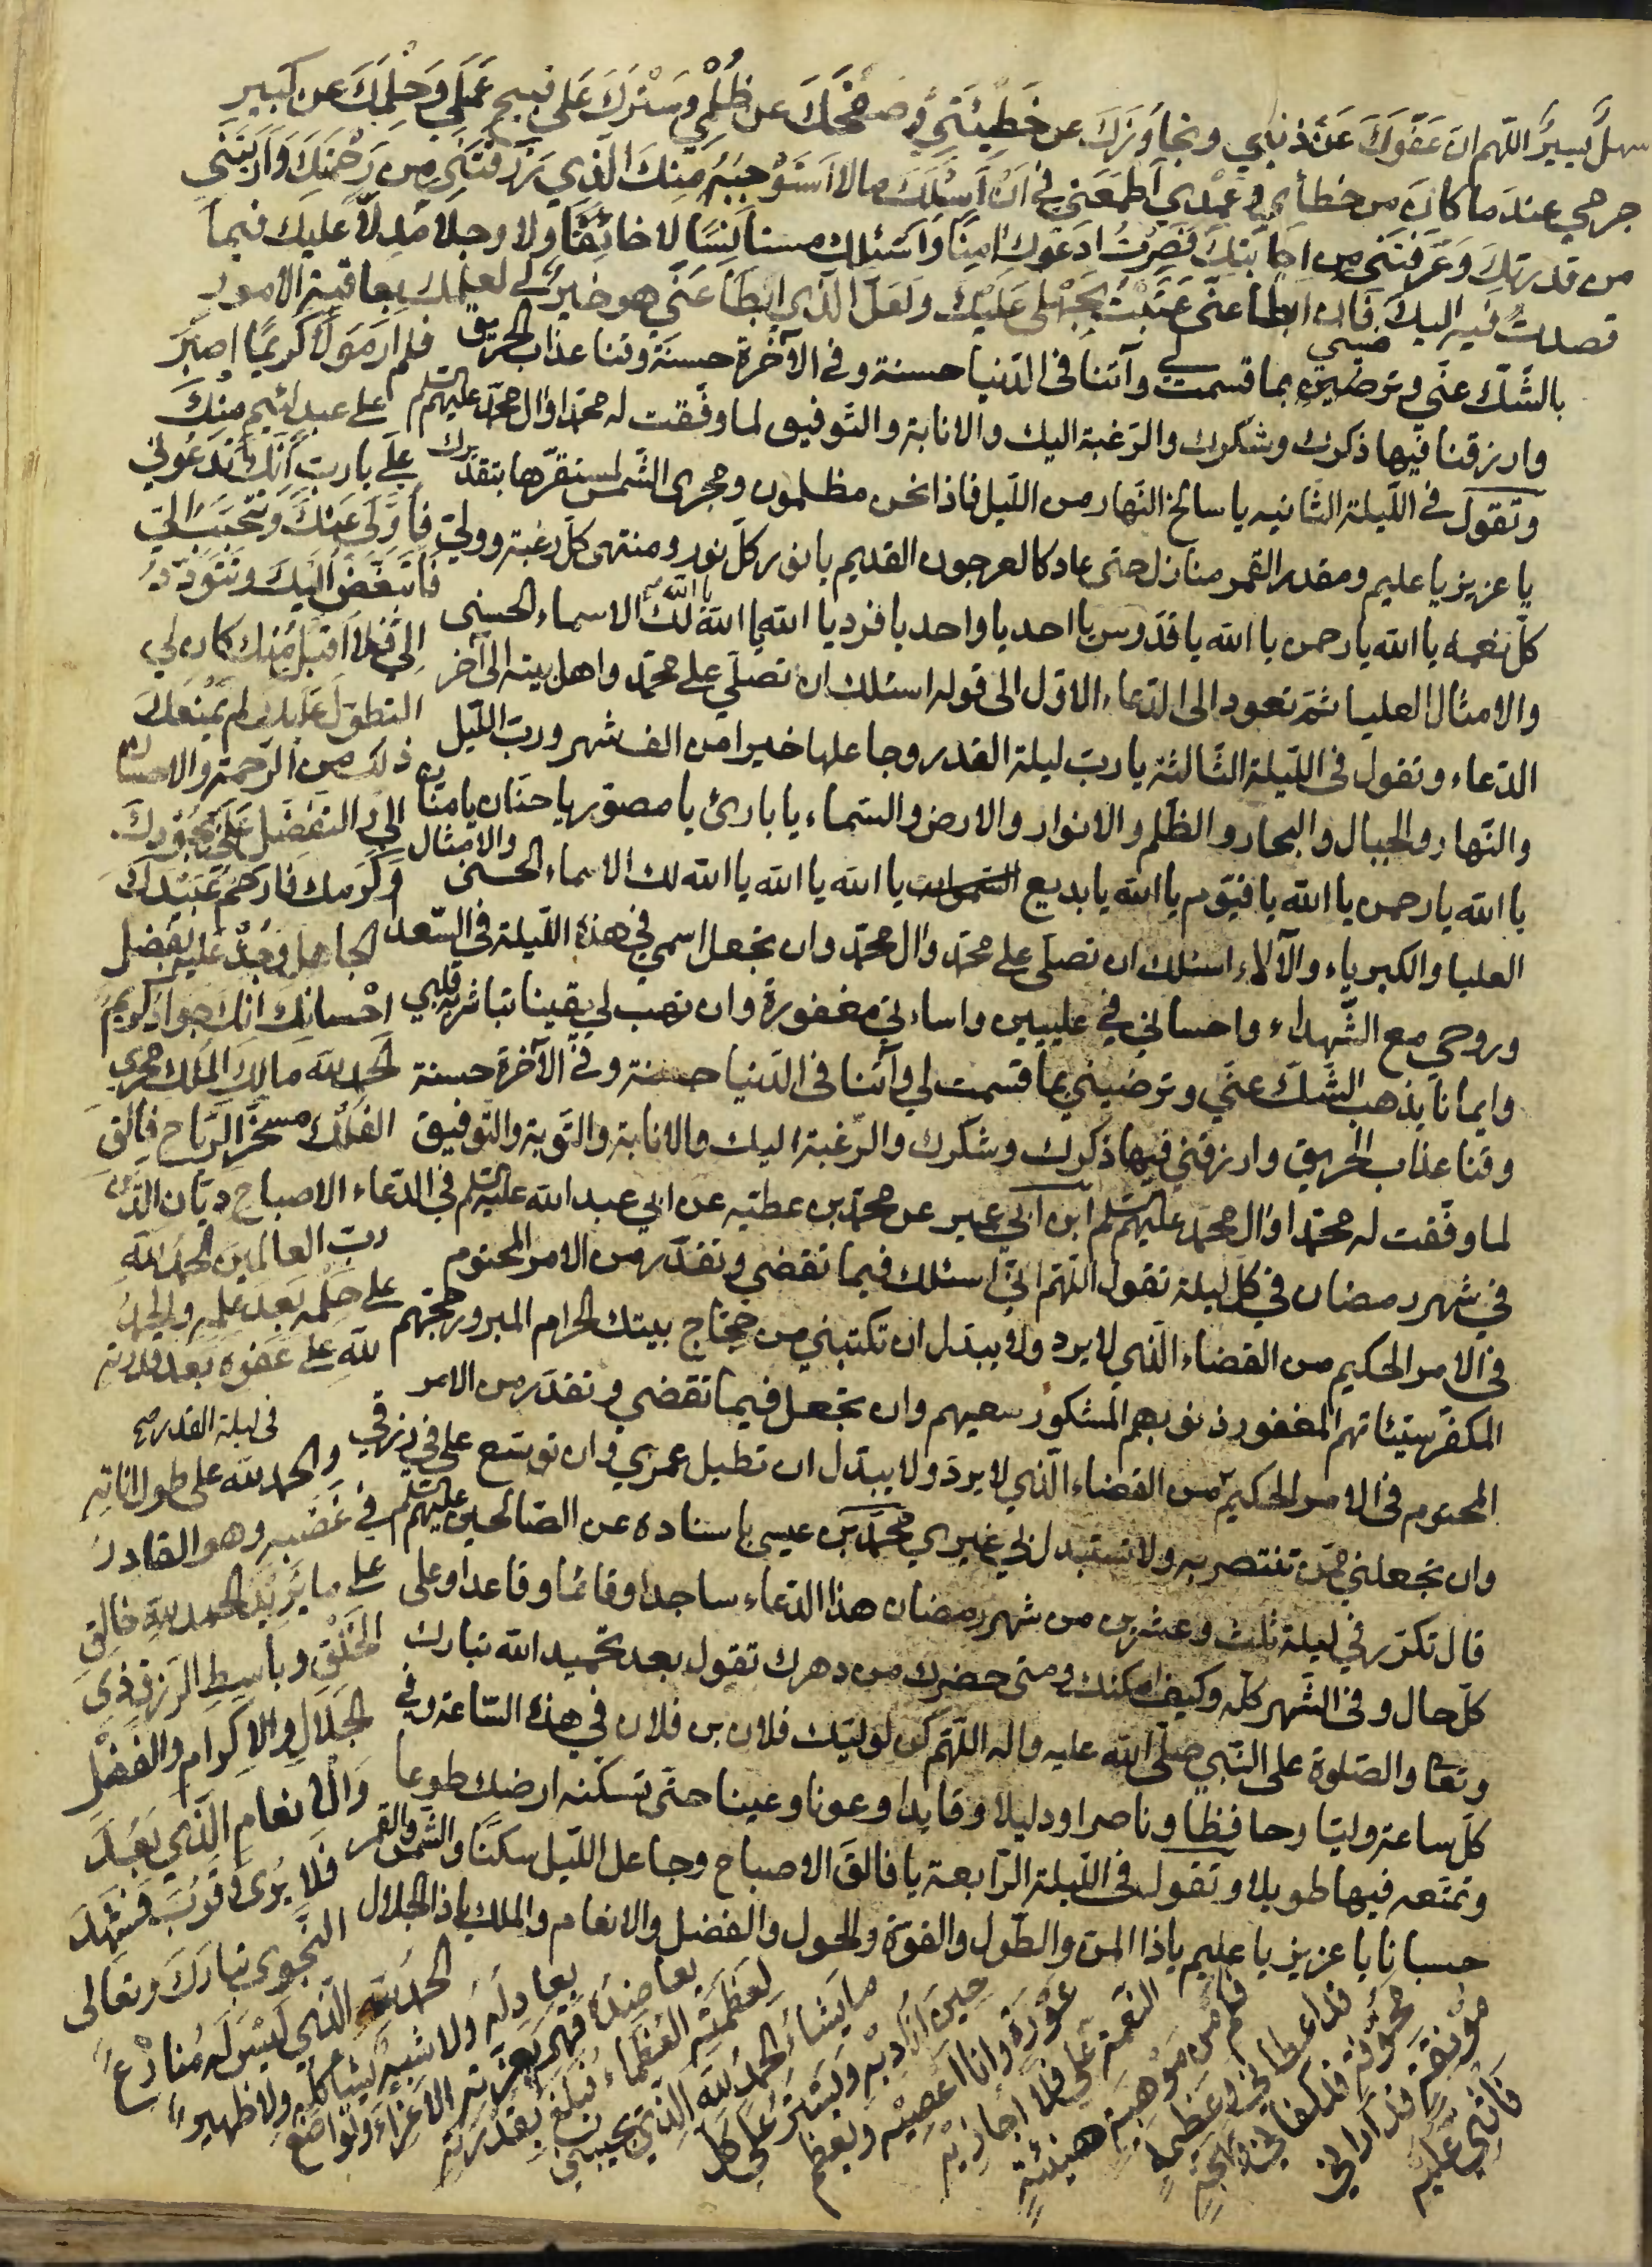 سهل يسير اللهم ان عَفْوَكَ عَنْ ذنبي وتجاوزك عن خطيئتي وصفحك عن ظلمي وسترك على قبيح عملي وحلمك عن كبير
جرمي عند ما كان من خطأي وعمدي اطمعني في ان اسئلك مالا استوجبه منك الذي رزقتني من رحمتك واريتني
من قدرتك وعرفتني من اجابتك فصرت ادعوك امنا واسئلك مستأنسا لا خائفا ولا وجلا مدلا عليك فيما
قصدت فيه اليك فان ابطأ عني عتبت بجهلي عليك ولعل الذي ابطأ عني هو خير لي لعلمك بعاقبة الامور
بالشك عني وترضيني بما قسمت لي وآتنا في الدنيا حسنة وفي الآخرة حسنة وقنا عذاب الحريق
وارزقنا فيها ذكرك وشكرك والرغبة اليك والانابة والتوفيق لما وفقت له محمدا وال محمد عليهم السلم
وتقول في الليلة الثانيه يا سالخ النهار من الليل فاذا نحن مظلمون ومجرى الشمس لمستقرها بتقديرك
يا عزيز يا عليم ومقدر القمر منازل حتى عاد كالعرجون القديم يا نور كل نور ومنتهى كل رغبة وولي
كل نعمة يا الله يا رحمن يا الله يا قدوس يا احد يا واحد يا فرد يا الله يا الله يا الله لك الاسماء الحسنى
والامثال العليا ثم تعود الى الدعاء الاول الى قوله اسئلك ان تصلي على محمد واهل بيته الى آخر
الدعاء وتقول في الليلة الثالثة يا رب ليلة القدر وجاعلها خيرا من الف شهر ورب الليل
والنهار والجبال والبحار والظلم والانوار والارض والسماء يا بارئ يا مصور يا حنان يا منان
يا الله يا رحمن يا الله يا قيوم يا الله يا بديع السموات يا الله يا الله يا الله لك الاسماء الحسنى والامثال
العليا والكبرياء والآلاء اسئلك ان تصلى على محمد وال محمد وان تجعل اسمي في هذه الليلة في السعداء
وروحي مع الشهداء واحساني في عليين واساءتي مغفورة وان تهب لي يقينا تباشر به قلبي
وايمانا يذهب الشك عني وترضيني بما قسمت لي وآتنا في الدنيا حسنة وفي الآخرة حسنة
وقنا عذاب الحريق وارزقني فيها ذكرك وشكرك والرغبة اليك والانابة والتوبة والتوفيق
لما وفقت له محمدا وال محمد عليهم السلم ابن ابي عمير عن محمد بن عطيه عن ابي عبد الله عليه السلم في الدعاء
في شهر رمضان في كل ليلة تقول اللهم اني اسئلك فيما تقضي وتقدر من الامر المحتوم
في الامر الحكيم من القضاء الذي لا يرد ولا يبدل ان تكتبني من حجاج بيتك الحرام المبرور حجهم
المكفر سيئاتهم المغفور ذنوبهم المشكور سعيهم وان تجعل فيما تقضي وتقدر من الامر
المحتوم في الامر الحكيم من القضاء الذي لا يرد ولا يبدل ان تطيل عمري وان توسع على في رزقي
في ليلة القدر
وان تجعلني ممن تنتصر به ولا تستبدل بي غيري محمد بن عيسى باسناده عن الصالحين عليهم السلم
قال تكرر في ليلة ثلث وعشرين من شهر رمضان هذا الدعاء ساجدا وقائما وقاعدا وعلى
كل حال وفي الشهر كله وكيف امكنك ومتى حضرك من دهرك تقول بعد تحميد الله تبارك
وتعالى والصلوة على النبي صلى الله عليه واله اللهم كن لوليك فلان بن فلان في هذه الساعة وفي
كل ساعة وليا وحافظا وناصرا ودليلا وقايدا وعونا وعينا حتى تسكنه ارضك طوعا
وتمتعه فيها طويلا وتقول في الليلة الرابعة يا فالق الاصباح وجاعل الليل سكنا والشمس والقمر
حسبانا يا عزيز يا عليم يا ذا المن والطول والقوة والحول والفضل والانعام والملك يا ذا الجلال
فلم ار مولا كريما اصبر
على عبد لئيم منك
علي يا رب انك تدعوني
فاولي عنك وتتحبب الي
فاتبغض اليك وتتودد
الي فلا اقبل منك كان لي
التطول عليك ولم يمنعك
ذلك من الرحمة والاحسان
الي والتفضل علي بجودك
وكرمك فارحم عبدك
الجاهل وجد عليه بفضل
احسانك انك جواد كريم
الحمد لله مالك الملك مجري
الفلك مسخر الرياح فالق
الاصباح ديان الدين
رب العالمين الحمد لله
على حلمه بعد علمه والحمد
لله على عفوه بعد قدرته
والحمد لله على طول اناته
في غضبه وهو القادر
على ما يريد الحمد لله خالق
الخلق وباسط الرزق ذي
الجلال والاكرام والفضل
والانعام الذي بعد
فلا يرى وقرب فشهد
النجوى تبارك وتعالى
الحمد لله الذي ليس له منازع
يعادله ولا شبيه يشاكله ولا ظهير
يعاضده قهر بعزته الاعزاء وتواضع
لعظمته العظماء فبلغ بقدرته
ما يشاء الحمد لله الذي يجيبني
حين اناديه ويستر علي كل
عورة وانا اعصيه ويعظم
النعمة علي فلا اجازيه
فكم من موهبة هنيئة
قد اعطاني وعظيمة
مخوفة قد كفاني وبهجة
مونقة قد اراني
فاثني عليه